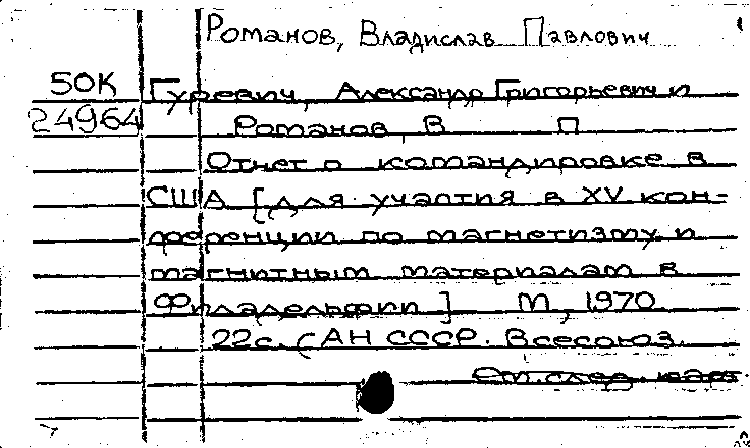 Романов, Владислав Павлович
50К Гуревич, Александр Григорьевич и
24964 Романов, В П
Отчет о командировке в
США [для участия в XV кон-
ференции по магнетизму и
магнитным материалам в
Филадельфии] М, 1970
22с. (АН СССР. Всесоюз.
См. след. карт.